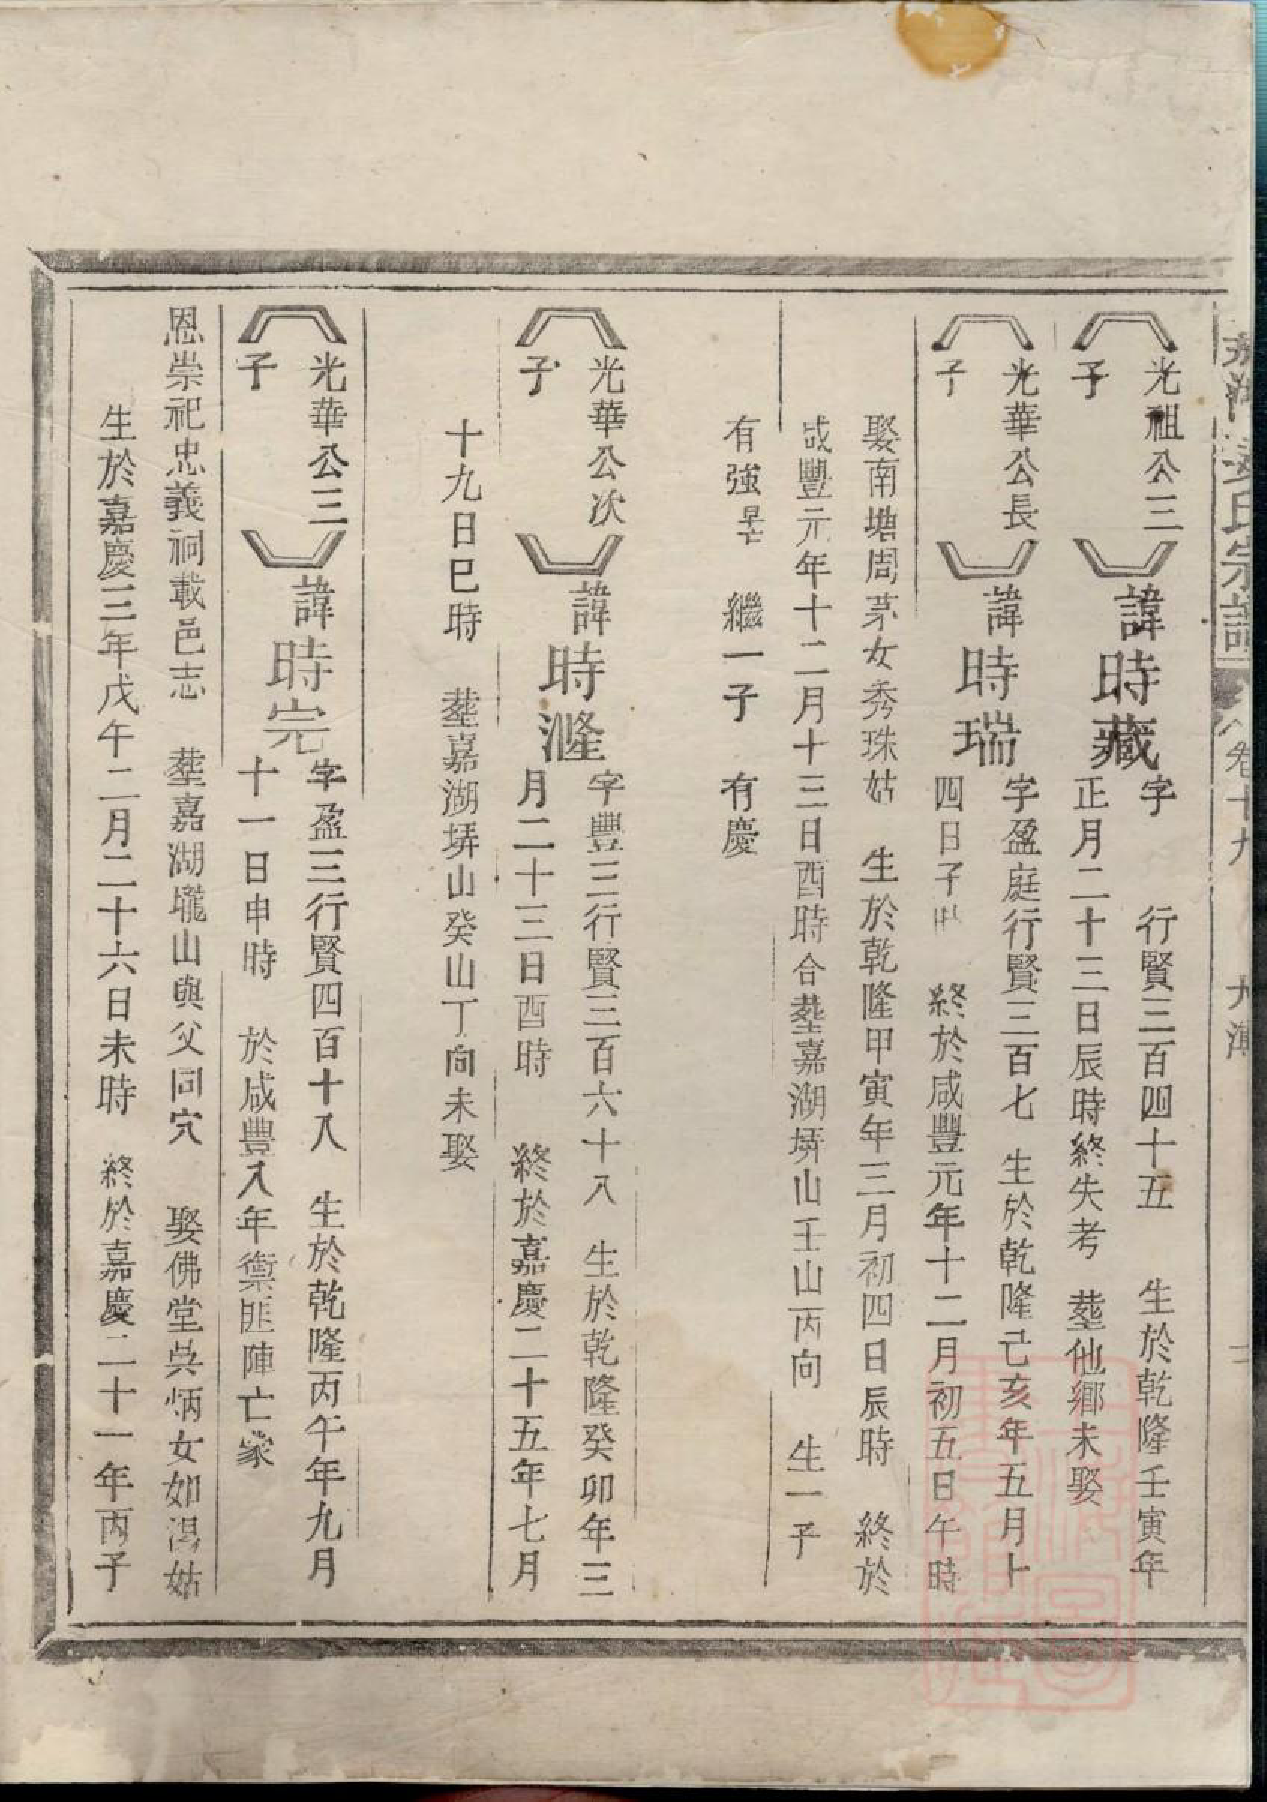 氏宗譜 卷十九
光祖公三
子
諱時藏
字 行賢三百四十五 生於乾隆壬寅年
正月二十三日辰時終失考 塟他鄉未娶
光華公長
子
諱時瑞
字盈庭行賢三百七 生於乾隆己亥年五月十
四日子時 終於咸豐元年十二月初五日午時
娶南塘周茅女秀珠姑 生於乾隆甲寅年三月初四日辰時 終於
咸豐元年十二月十三日酉時合塟嘉湖塝山壬山丙向 生一子
有強 繼一子 有慶
光華公次
子
諱時漋
字豐三行賢三百六十八 生於乾隆癸卯年三
月二十三日酉時 終於嘉慶二十五年七月
十九日巳時 塟嘉湖塝山癸山丁向未娶
光華公三
子
諱時完
字盈三行賢四百十八 生於乾隆丙午年九月
十一日申時 於咸豐八年禦匪陣亡蒙
恩崇祀忠義祠載邑志 塟嘉湖壠山與父同穴 娶佛堂吳炳女如湯姑
生於嘉慶三年戊午二月二十六日未時 終於嘉慶二十一年丙子